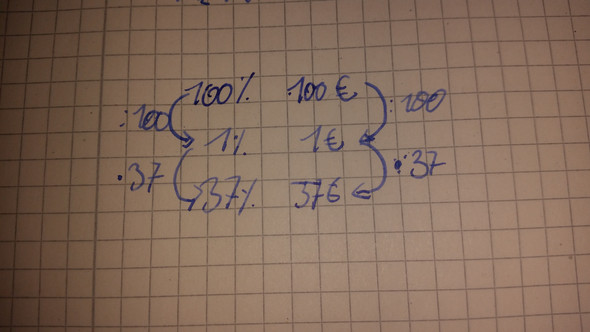 100% 100 €
:100 :100
1% 1 €
·37 ·37
37% 37€